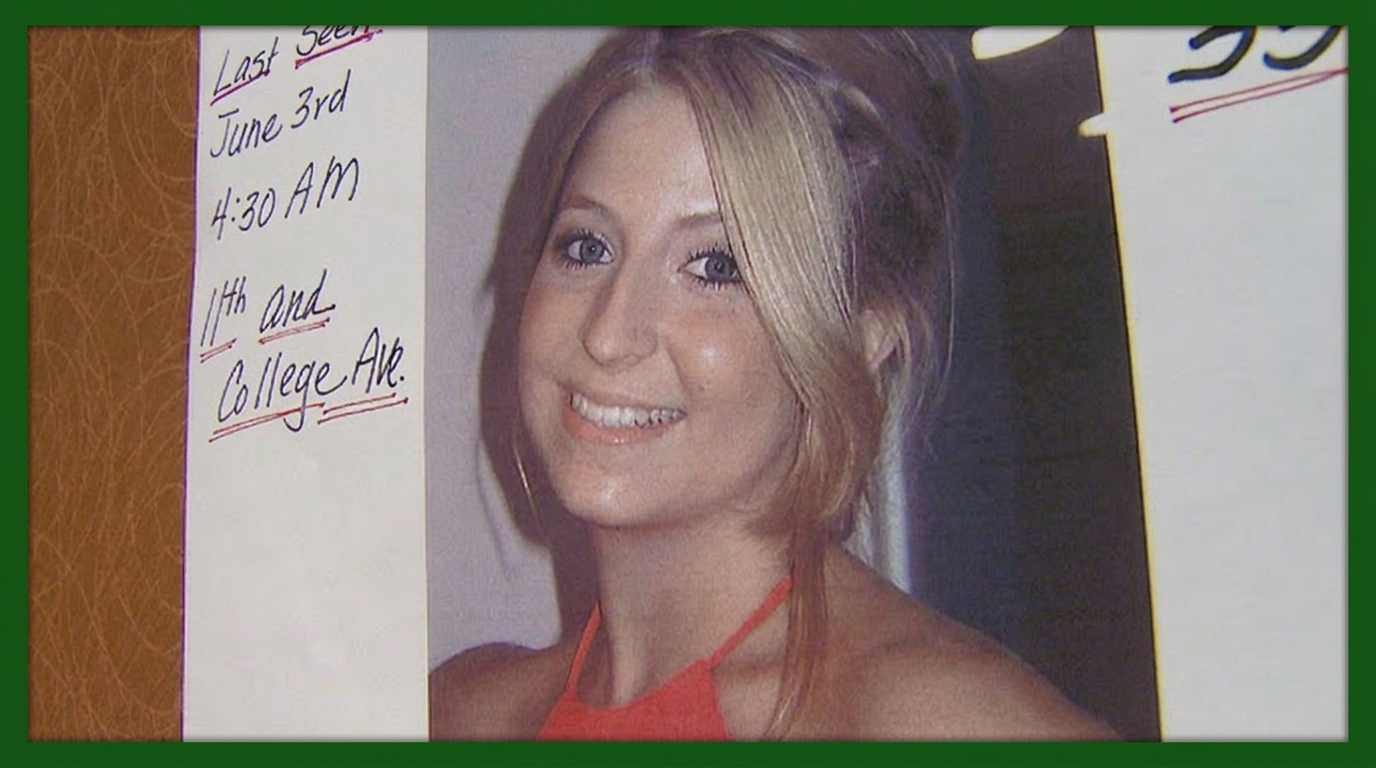 Last Seen
June 3rd
4:30 AM
11th and
College Ave.